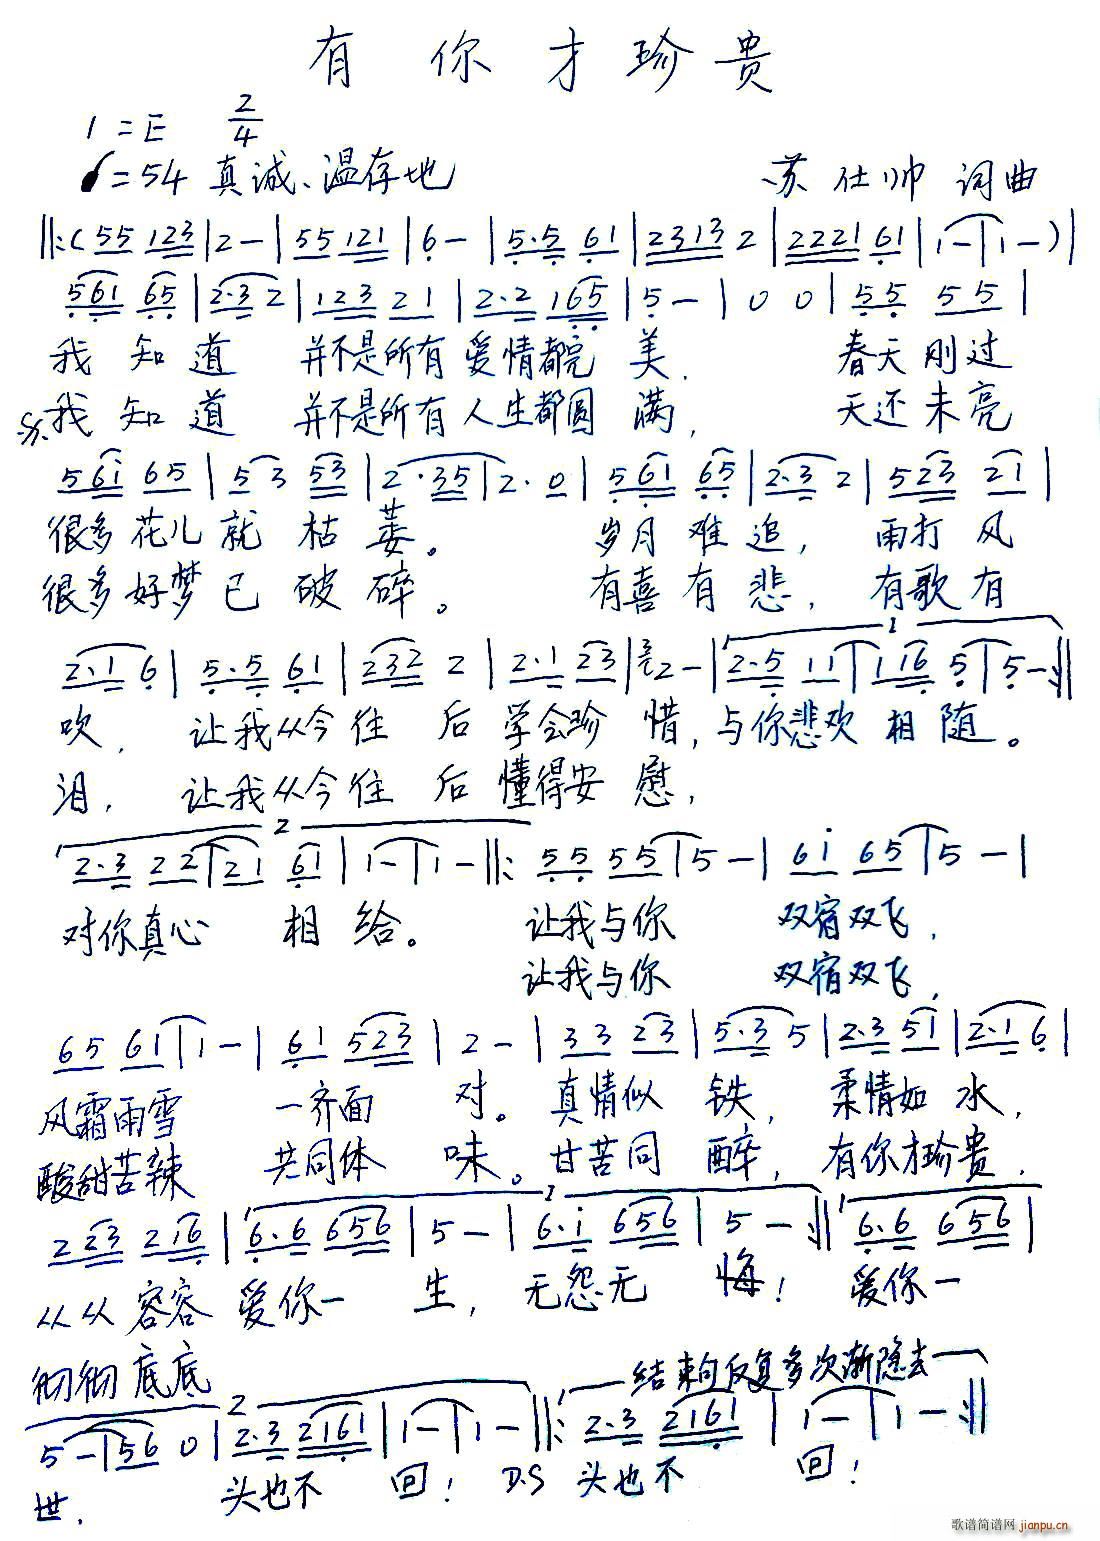 有你才珍贵
1=E 2/4
♩=54 真诚、温存地 苏仕帅 词曲
‖:( 55 123 | 2 - | 55 121 | 6 - | 5·5 61 | 2313 2 | 2221 61 | 1 - | 1 - ) |
561 65 | 2·3 2 | 123 21 | 2·2 165 | 5 - | 0 0 | 55 55 |
我知道 并不是所有爱情都完美. 春天刚过
我知道 并不是所有人生都圆满, 天还未亮
561 65 | 53 53 | 2·35 | 2·0 | 561 65 | 2·3 2 | 523 21 |
很多花儿就枯萎。 岁月难追, 雨打风
很多好梦已破碎。 有喜有悲, 有歌有
2·1 6 | 5·5 61 | 232 2 | 2·1 23 | 2 - | 1 2·5 11 | 116 5 | 5 - :‖
吹, 让我从今往后学会珍惜, 与你悲欢相随。
泪, 让我从今往后懂得安慰,
2
2·3 22 | 21 61 | 1 - | 1 - ‖: 55 55 | 5 - | 61 65 | 5 - |
对你真心相给。 让我与你 双宿双飞,
让我与你 双宿双飞,
65 61 | 1 - | 61 523 | 2 - | 33 23 | 5·3 5 | 2·3 51 | 2·1 6 |
风霜雨雪 一齐面对。真情似铁, 柔情如水,
酸甜苦辣 共同体味。甘苦同醉, 有你才珍贵.
1
223 216 | 6·6 656 | 5 - | 6·i 656 | 5 - :‖ 6·6 656 |
从从容容 爱你一生, 无怨无悔! 爱你一
彻彻底底
2 结束句反复多次渐隐去
5 - | 56 0 | 2·3 2161 | 1 - | 1 - ‖: 2·3 2161 | 1 - | 1 - :‖
世. 头也不回! D.S 头也不回!
歌谱简谱网 jianpu.cn